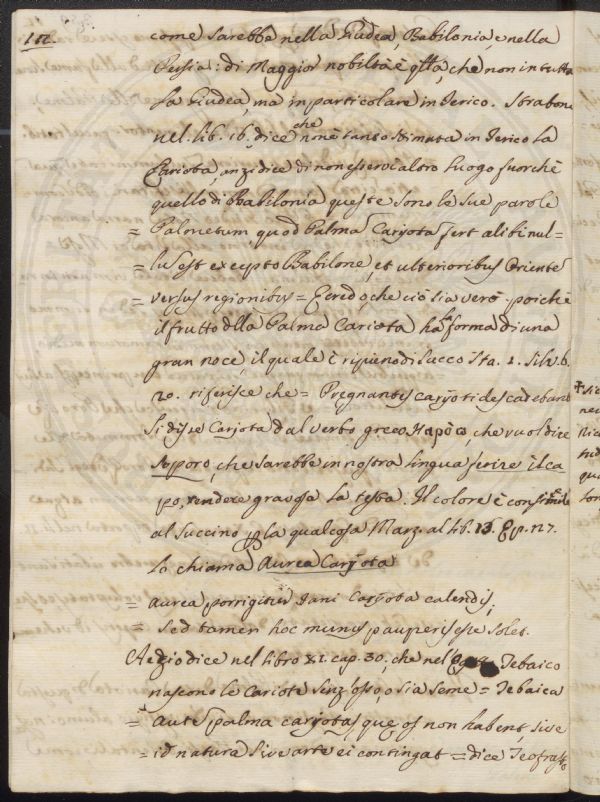 come sarebbe nella Giudea, Babilonia, e nella
Persia: di Maggior nobiltà è q.sta, che non in tutta
la Giudea, ma in particolare in Jerico. Strabone
nel lib. 16. dice che non è tanto stimata in Jerico la
Cariota, anzi dice di non esservi altro luogo fuorchè
quello di Babilonia queste sono le sue parole
= Palmetum, quod Palma Caryota fert alibi nul=
= lus est excepto Babilone, et ulterioribus Oriente
= versus regionibus = E credo, che ciò sia vero, poichè
il frutto della Palma Cariota ha la forma di una
gran noce, il quale è ripieno di succo Sta. 1. Silv. 6.
20. riferisce che = Pregnantes caryotides cadebant
Si disse Carjota dal verbo greco, che vuol dire
Soporo, che sarebbe in nostra lingua ferire il ca
po, rendere gravosa la testa. Il colore è consimile
al Succino p. la qual cosa Marz. al lib. 13. Ep. 27.
la chiama Aurea Carjota
= Aurea porrigitur Jani Caryota calendis;
= Sed tamen hoc munus pauperis esse solet.
Aezio dice nel libro XI. cap. 30., che nel Tebaico
nascono le Cariote senz'osso, o sia seme = Tebaica
= aute palma caryotas, que os non habent, sive
= id natura sive arte ei contingat = dice Teofrasto